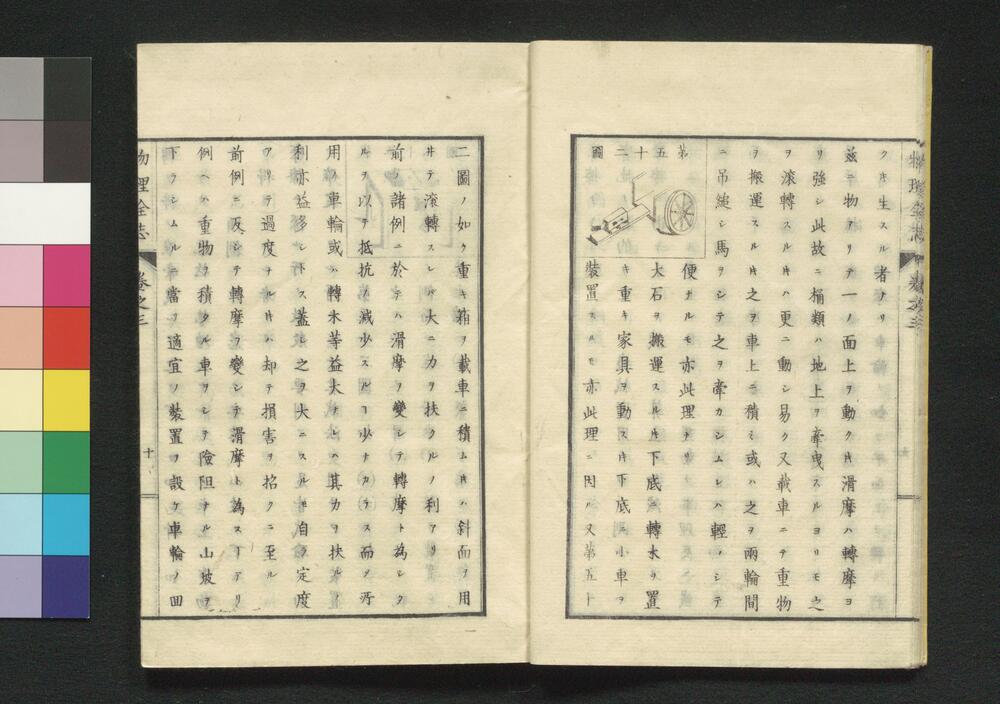 クヰ生スル者ナリ
茲ニ物アリテ一ノ面上ヲ動クヰ滑摩ハ轉摩ヨ
リ強シ此故ニ桶類ハ地上ヲ牽曳スルヨリモ之
ヲ滾轉スルヰハ更ニ動シ易ク又載車ニテ重物
ヲ搬運スルヰ之ヲ車上ニ積ミ或ハ之ヲ兩輪間
ニ吊縋シ馬ヲシテ之ヲ牽カシムレハ輕ノシテ
便ナルモ亦此理ナリ
大石ヲ搬運スルヰ下底ニ轉木リ置
キ重キ家具ヲ動スヰ下底ニ小車ヲ
裝置スルモ亦此理ニ因ル又第五十
第五十二圖
二圖ノ如ク重キ箱ヲ載車ニ積ムヰハ斜面ヲ用
井テ滾轉スレバ大ニ力ヲ扶クルノ利アリ
前ノ諸例ニ於テハ滑摩ノ變シテ轉摩ト為シク
ルヲ以テ抵抗ノ減少スルヿ少ナカラス而ヲ所
用ノ車輪或ハ轉木等益大ナレハ其力ヲ扶ルノ
利亦益多シトス蓋シ之ヲ大ニスルモ自ラ定度
アリテ過度ナルヰハ却テ損害ヲ招クニ至ル
前例ニ反シテ轉摩ヲ變シテ滑摩ト為スヿアリ
例ヘハ重物ヲ積タル車ヲシテ險阻ナル山坡ヲ
下ラシムルニ當ヲ適宜ノ裝置ヲ設ケ車輪ノ回
物理全志 卷之三
十